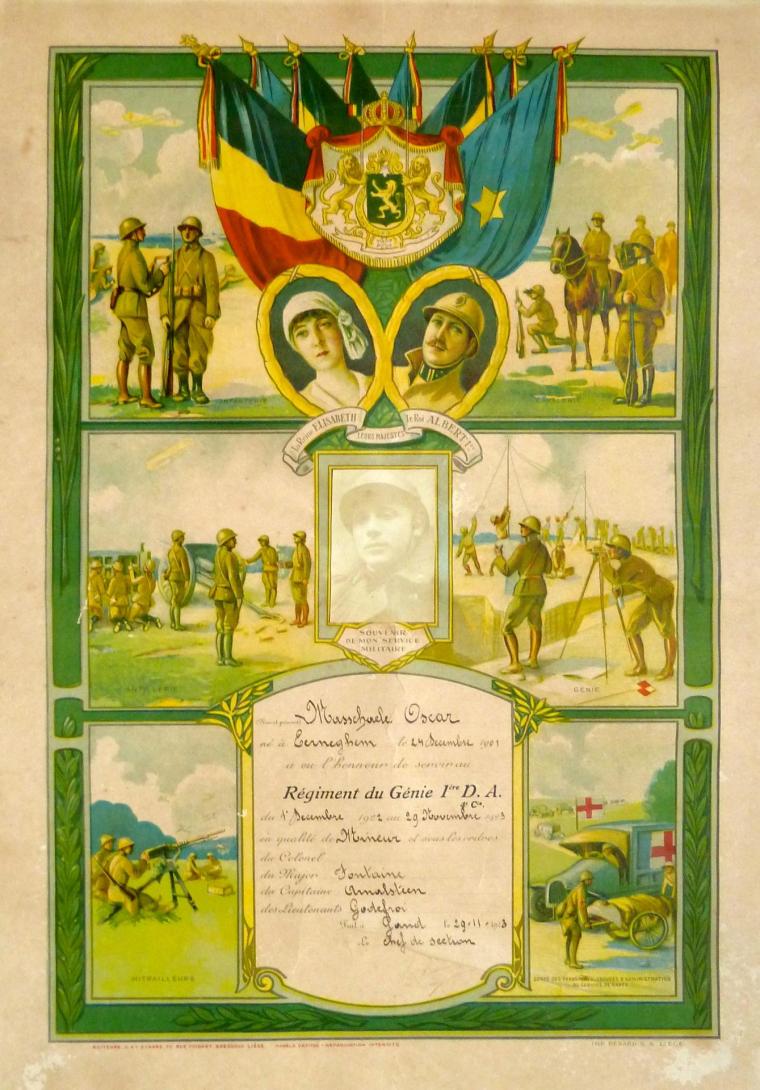 INFANTERIE
la Reine ELISABETH
LEURS MAJESTÉS
le Roi ALBERT 1er
SOUVENIR
DE MON SERVICE
MILITAIRE
ARTILLERIE
GENIE
Masschaele Oscar
né à Eerneghem le 24 Decembre 1901
a eu l'honneur de servir au
Régiment du Génie 1ère D. A.
du 1r Decembre 1922 au 29 Novembre 1923
en qualité de Mineur et sous les ordres
du Colonel
du Major Fontaine
du Capitaine
des Lieutenants Godefroi
Fait à Gand le 29-11-1923
Le Chef de section
MITRAILLEURS
CORPS DES TRANSPORTS
DU SERVICE DE SANTÉ
LIÉGE MODÈLE DÉPOSÉ - REPRODUCTION INTERDITE
IMP. BÉNARD S. A. LIÉGE